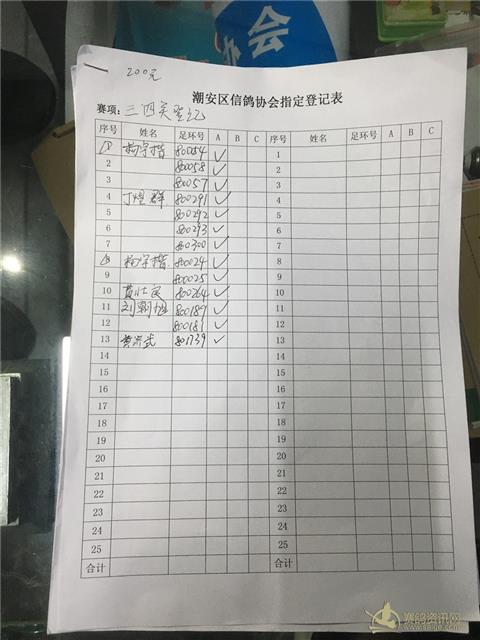 会
200元
潮安区信鸽协会指定登记表
赛项: 三四关登记
序号 姓名 足环号 A B C 序号 姓名 足环号 A B C
1 杨字楷 800054 ✓ 1
2 800058 ✓ 2
3 800057 ✓ 3
4 丁煜群 800291 ✓ 4
5 800292 ✓ 5
6 800293 ✓ 6
7 800300 ✓ 7
8 杨字楷 800024 ✓ 8
9 800025 ✓ 9
10 黄壮良 800264 ✓ 10
11 刘朝 800189 ✓ 11
12 800181 ✓ 12
13 黄 801739 ✓ 13
14 14
15 15
16 16
17 17
18 18
19 19
20 20
21 21
22 22
23 23
24 24
25 25
合计 合计
赛鸽资讯网